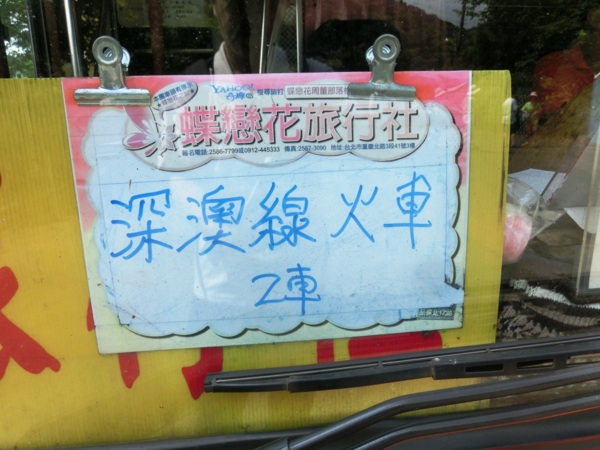 YAHOO! 奇摩 搜尋請打 蝶戀花周董部落格
蝶戀花旅行社
報名電話:2586-7799或0912-445333 傳真:2567-3090 地址:台北市重慶北路3段41號3樓
深澳線 火車
2車